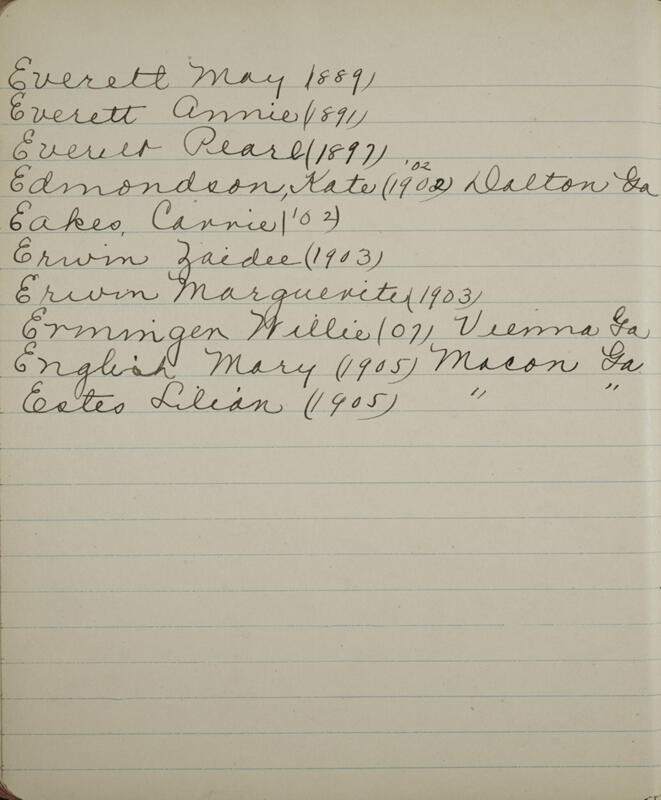 Everett May (1889)
Everett Annie (1891)
Everett Pearl (1897)
'02
Edmondson, Kate (1902) Dalton Ga
Eakes, Carrie ('02)
Erwin Zaidee (1903)
Erwin Marguerite (1903)
Erminger Willie (07) Vienna Ga
English Mary (1905) Macon Ga
Estes Lilian (1905) " "